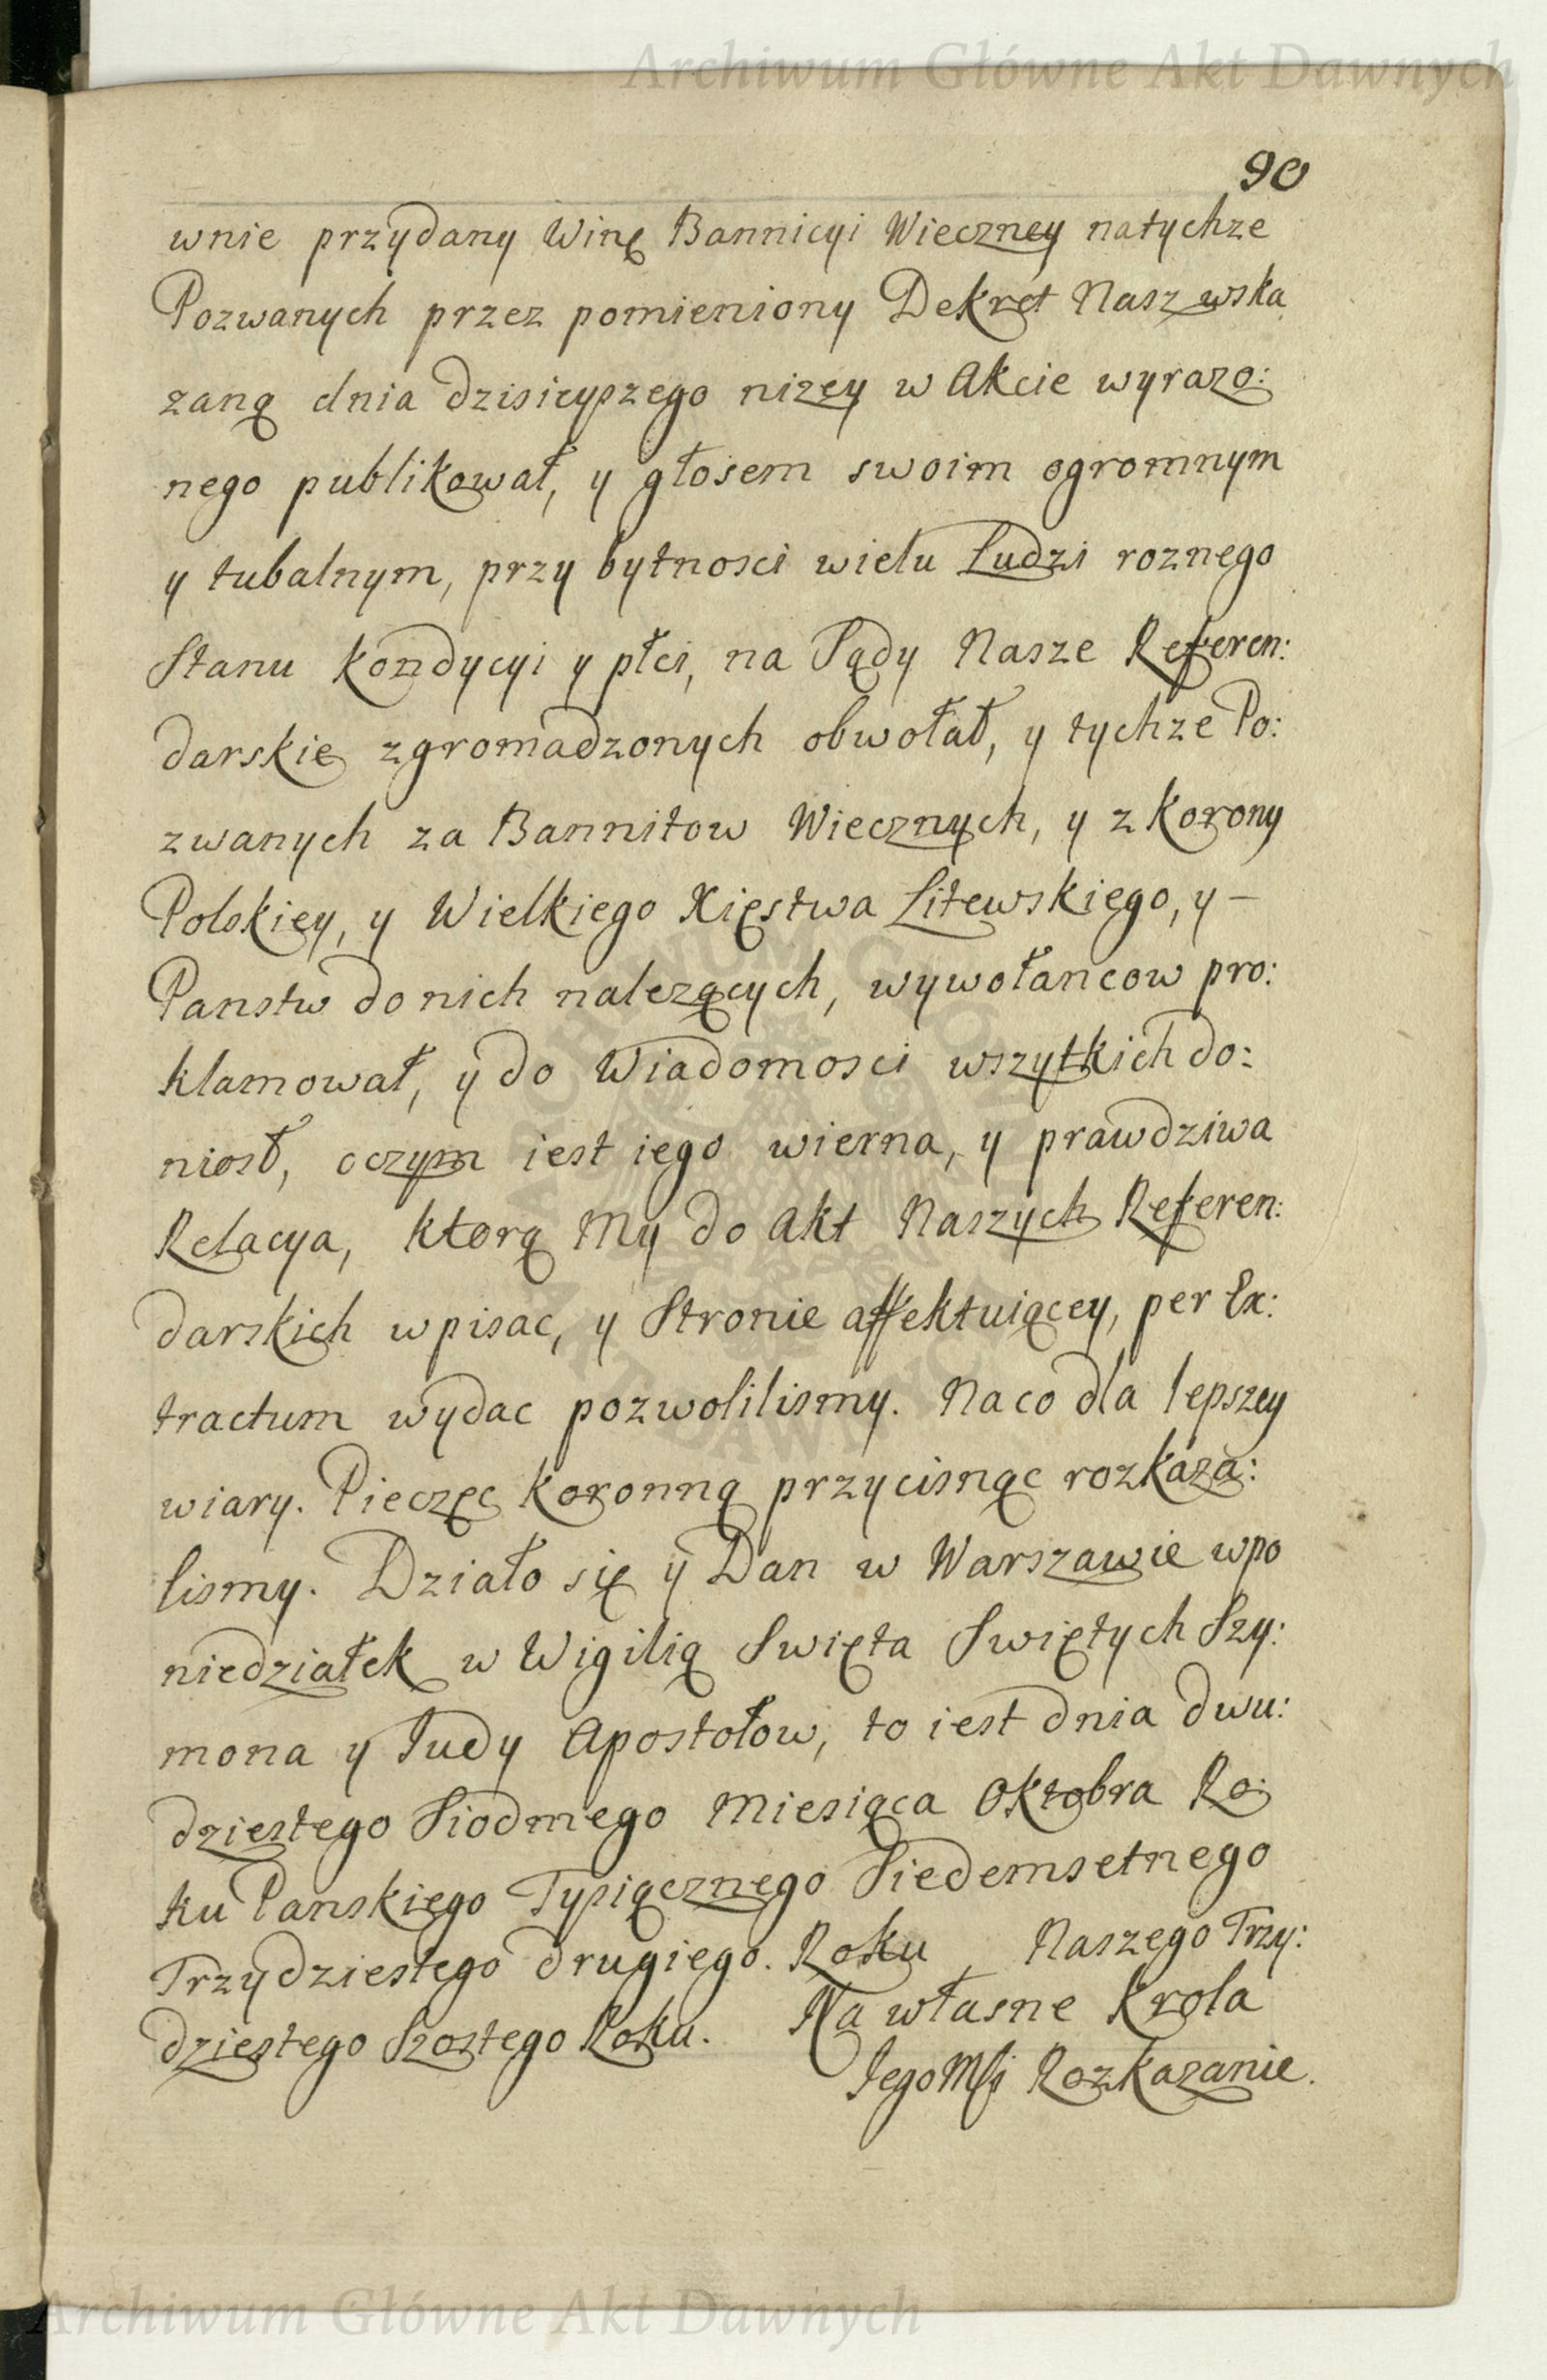 Archiwum Główne Akt Dawnych
90
wnie przydany Winę Bannicyi Wieczney natychze
Pozwanych przez pomieniony Dekret Nasz wska
zaną dnia dzisieyszego nizey w Akcie wyrazo:
nego publikował, y głosem swoim ogromnym
y tubalnym, przy bytnosci wielu Ludzi roznego
Stanu Kondycyi y płci, na Sądy Nasze Referen:
darskie zgromadzonych obwołał, y tychze Po:
zwanych za Bannitow Wiecznych, y z Korony
Polskiey, y Wielkiego Xięstwa Litewskiego, y –
Panstw do nich nalezących, wywołancow pro:
klamował, y do Wiadomosci wszytkich do:
niosł, oczym iest iego wierna, y prawdziwa
Relacya, ktorą My do Akt Naszych Referen:
darskich wpisac, y Stronie affektuiącey, per Ex:
tractum wydac pozwolilismy. Na co dla lepszey
wiary. Pieczęc Koronną przycisnąc rozkaza:
lismy. Działo się y Dan w Warszawie wpo
niedziałek w Wigilią Swięta Swiętych Szy:
mona y Judy Apostołow, to iest dnia dwu:
dziestego Siodmego Miesiąca Oktobra Ro:
ku Panskiego Tysiącznego Siedemsetnego
Trzydziestego drugiego. Roku Naszego Trzy:
dziestego Szostego Roku. Na własne Krola
JegoMsi Rozkazanie.
Archiwum Główne Akt Dawnych